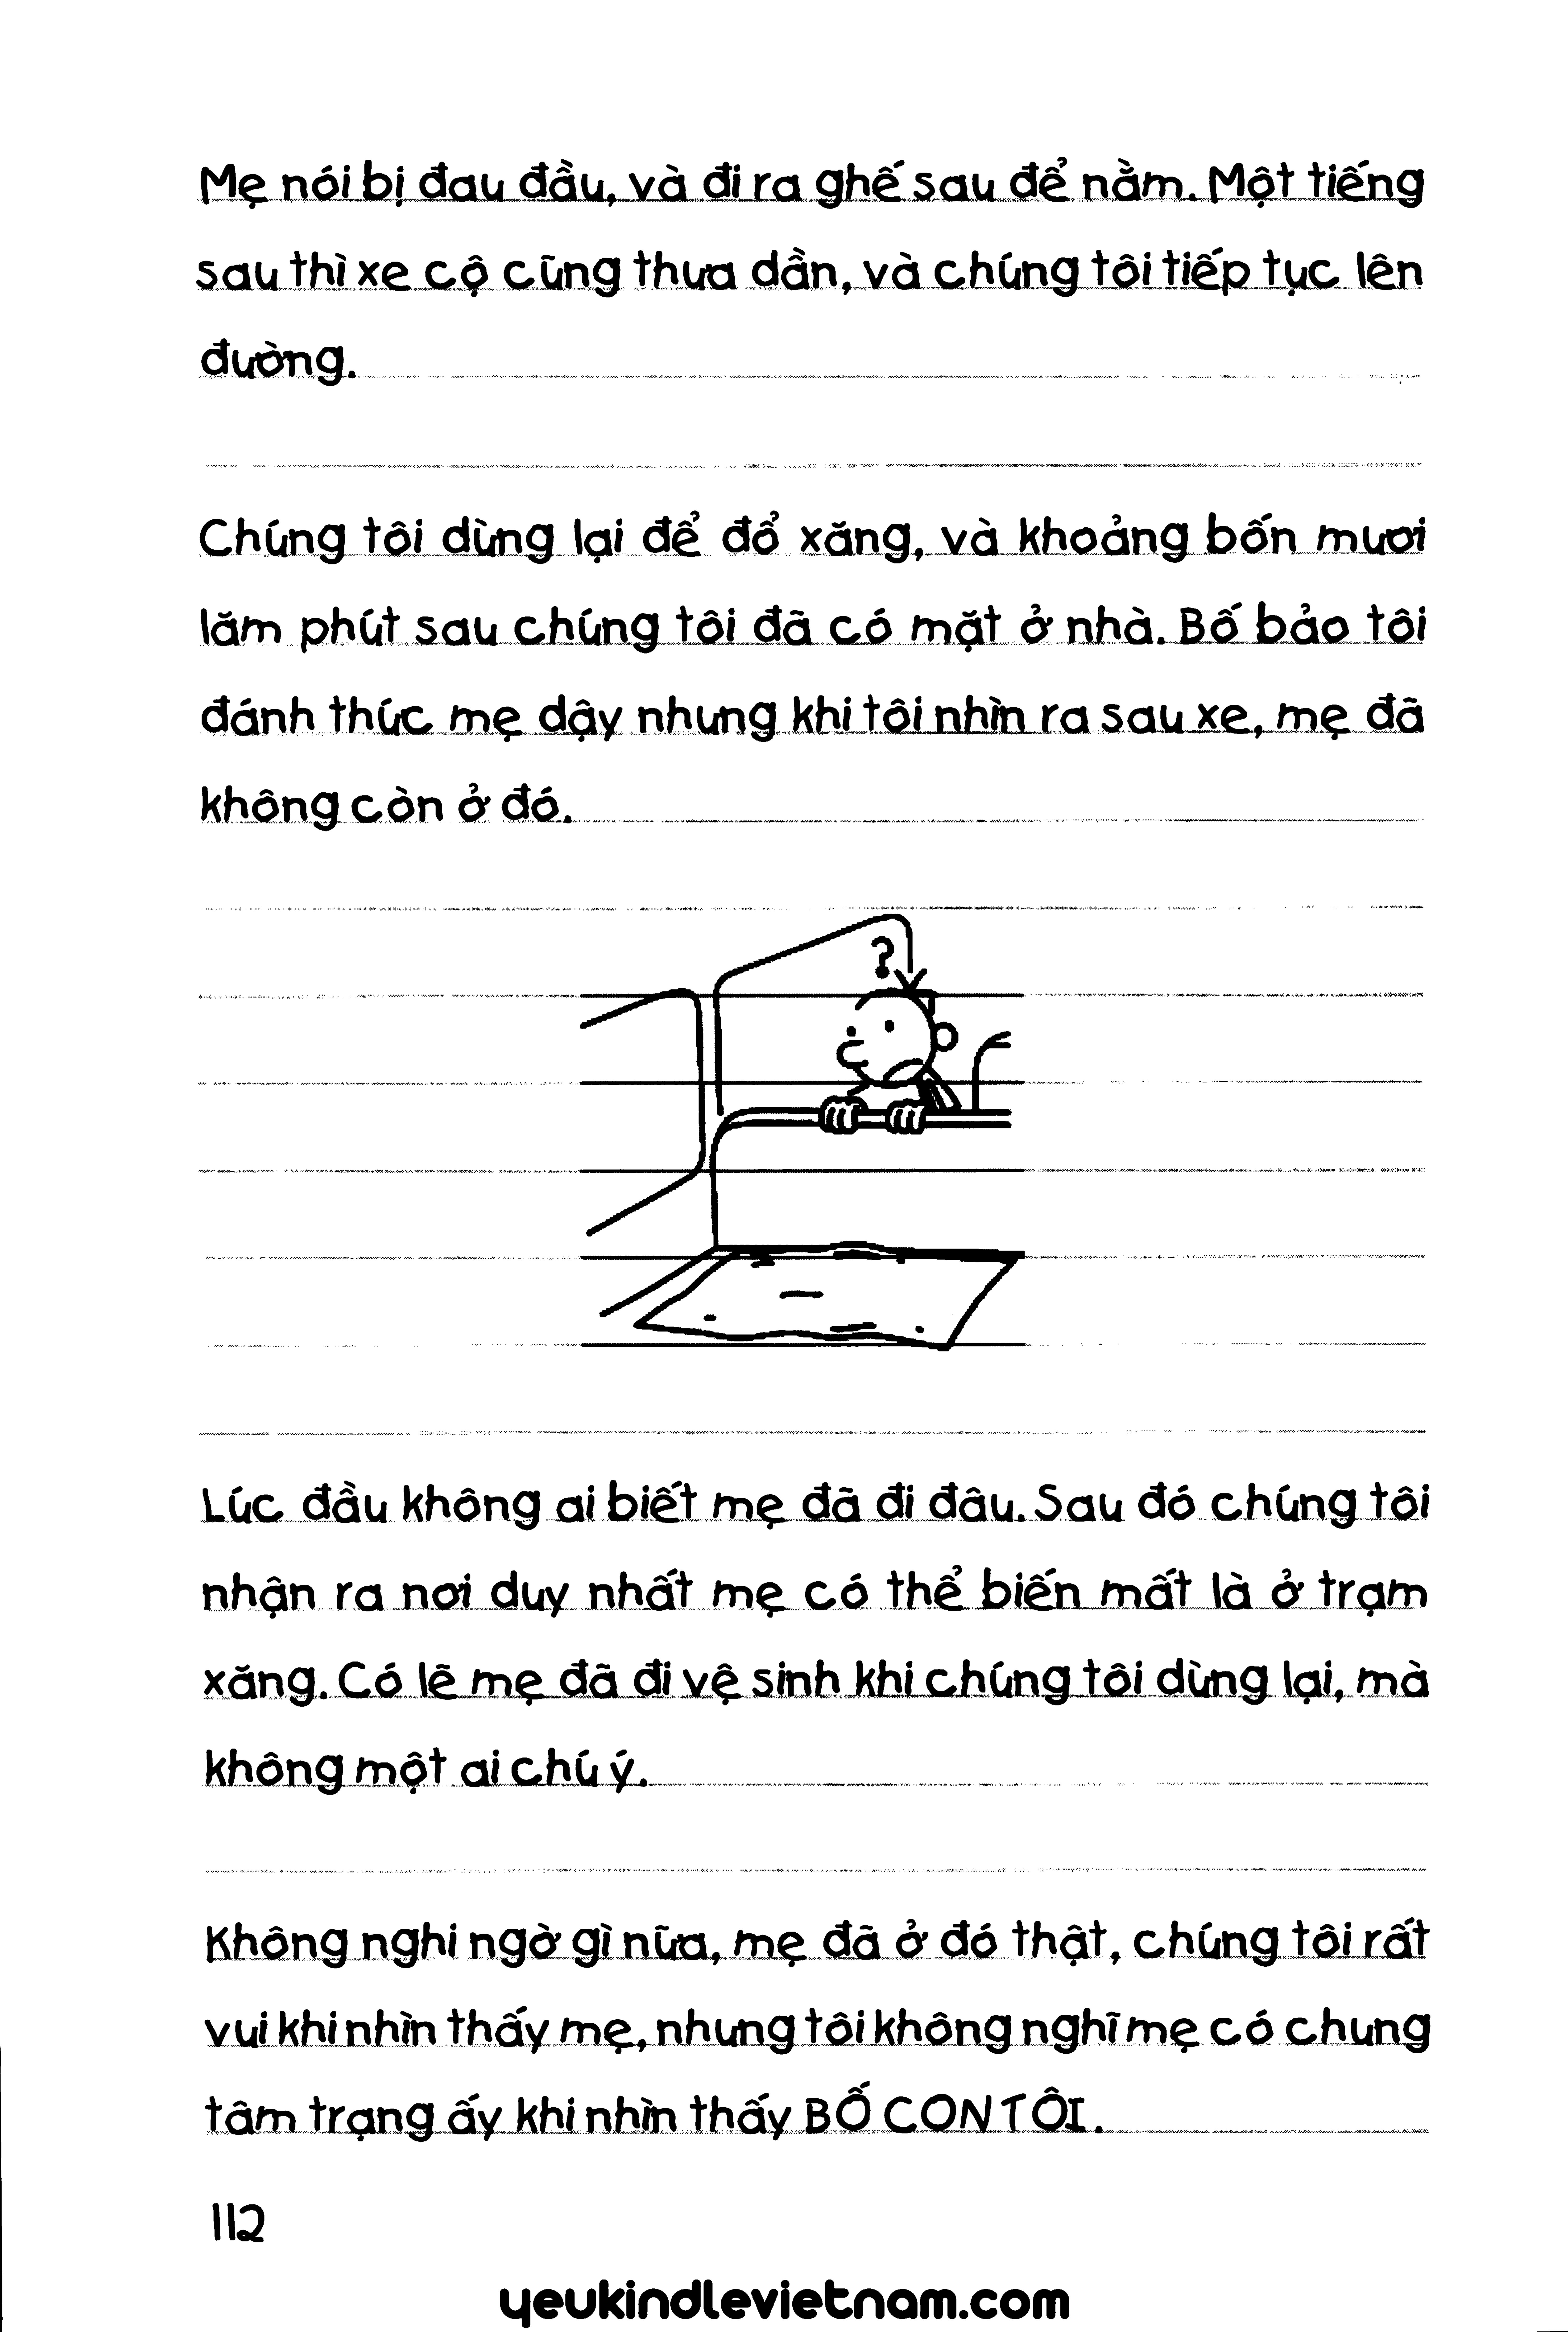 Mẹ nói bị đau đầu, và đi ra ghế sau để nằm. Một tiếng
sau thì xe cộ cũng thưa dần, và chúng tôi tiếp tục lên
đường.
Chúng tôi dừng lại để đổ xăng, và khoảng bốn mươi
lăm phút sau chúng tôi đã có mặt ở nhà. Bố bảo tôi
đánh thức mẹ dậy nhưng khi tôi nhìn ra sau xe, mẹ đã
không còn ở đó.
?
Lúc đầu không ai biết mẹ đã đi đâu. Sau đó chúng tôi
nhận ra nơi duy nhất mẹ có thể biến mất là ở trạm
xăng. Có lẽ mẹ đã đi vệ sinh khi chúng tôi dừng lại, mà
không một ai chú ý.
Không nghi ngờ gì nữa, mẹ đã ở đó thật, chúng tôi rất
vui khi nhìn thấy mẹ, nhưng tôi không nghĩ mẹ có chung
tâm trạng ấy khi nhìn thấy BỐ CON TÔI.
112
yeukindlevietnam.com